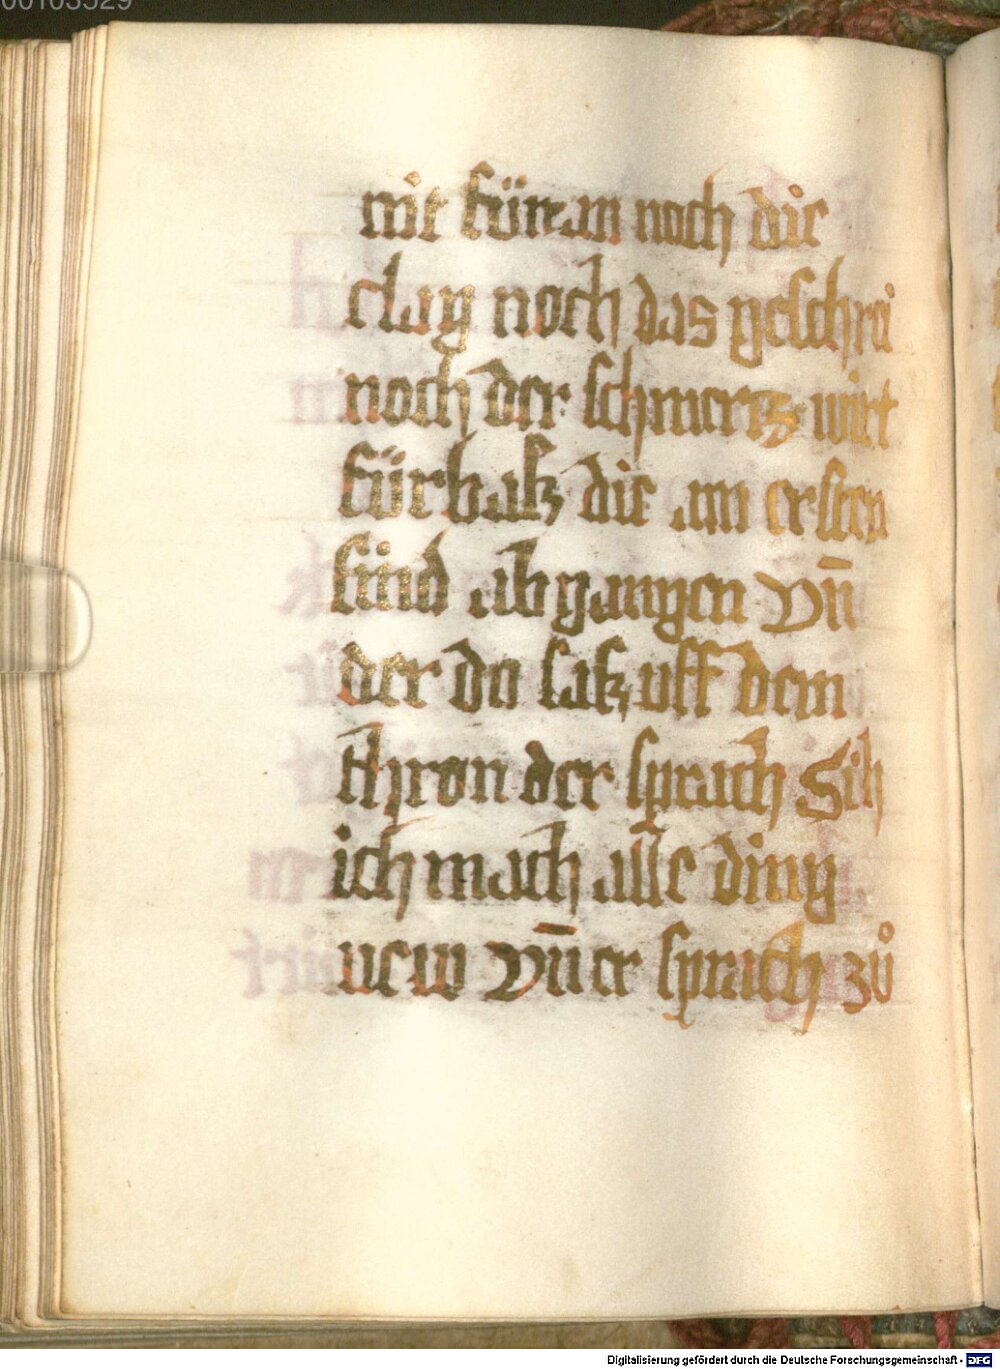 00103529
nit fürran noch die
clag noch das geschrei
noch der schmertz wirt
fürbasz die am ersten
sind abgangen Vn̄
der do sasz uff dem
thron der sprach Sih
ich mach alle ding
new Vn̄ er sprach zů
Digitalisierung gefördert durch die Deutsche Forschungsgemeinschaft - DFG